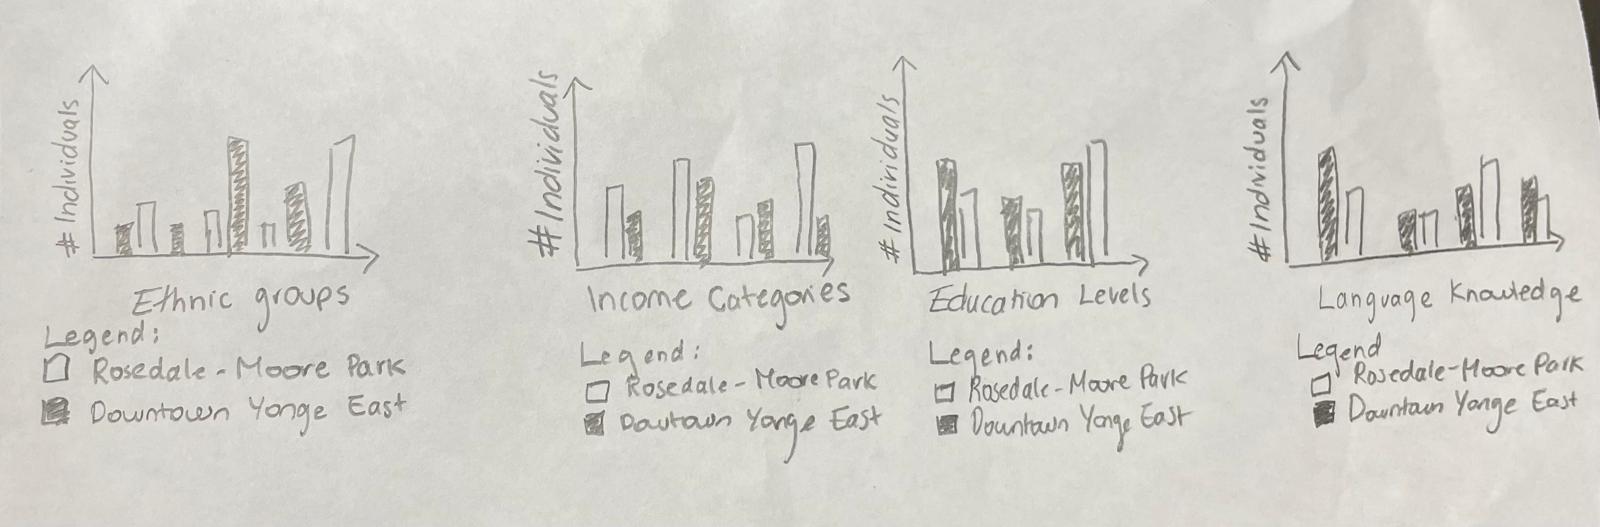 # Individuals
Ethnic groups
Legend:
Rosedale - Moore Park
Downtown Yonge East
# Individuals
Income Categories
Legend:
Rosedale - Moore Park
Dowtown Yonge East
# Individuals
Education Levels
Legend:
Rosedale - Moore Park
Downtown Yonge East
# Individuals
Language Knowledge
Legend
Rosedale - Moore Park
Downtown Yonge East